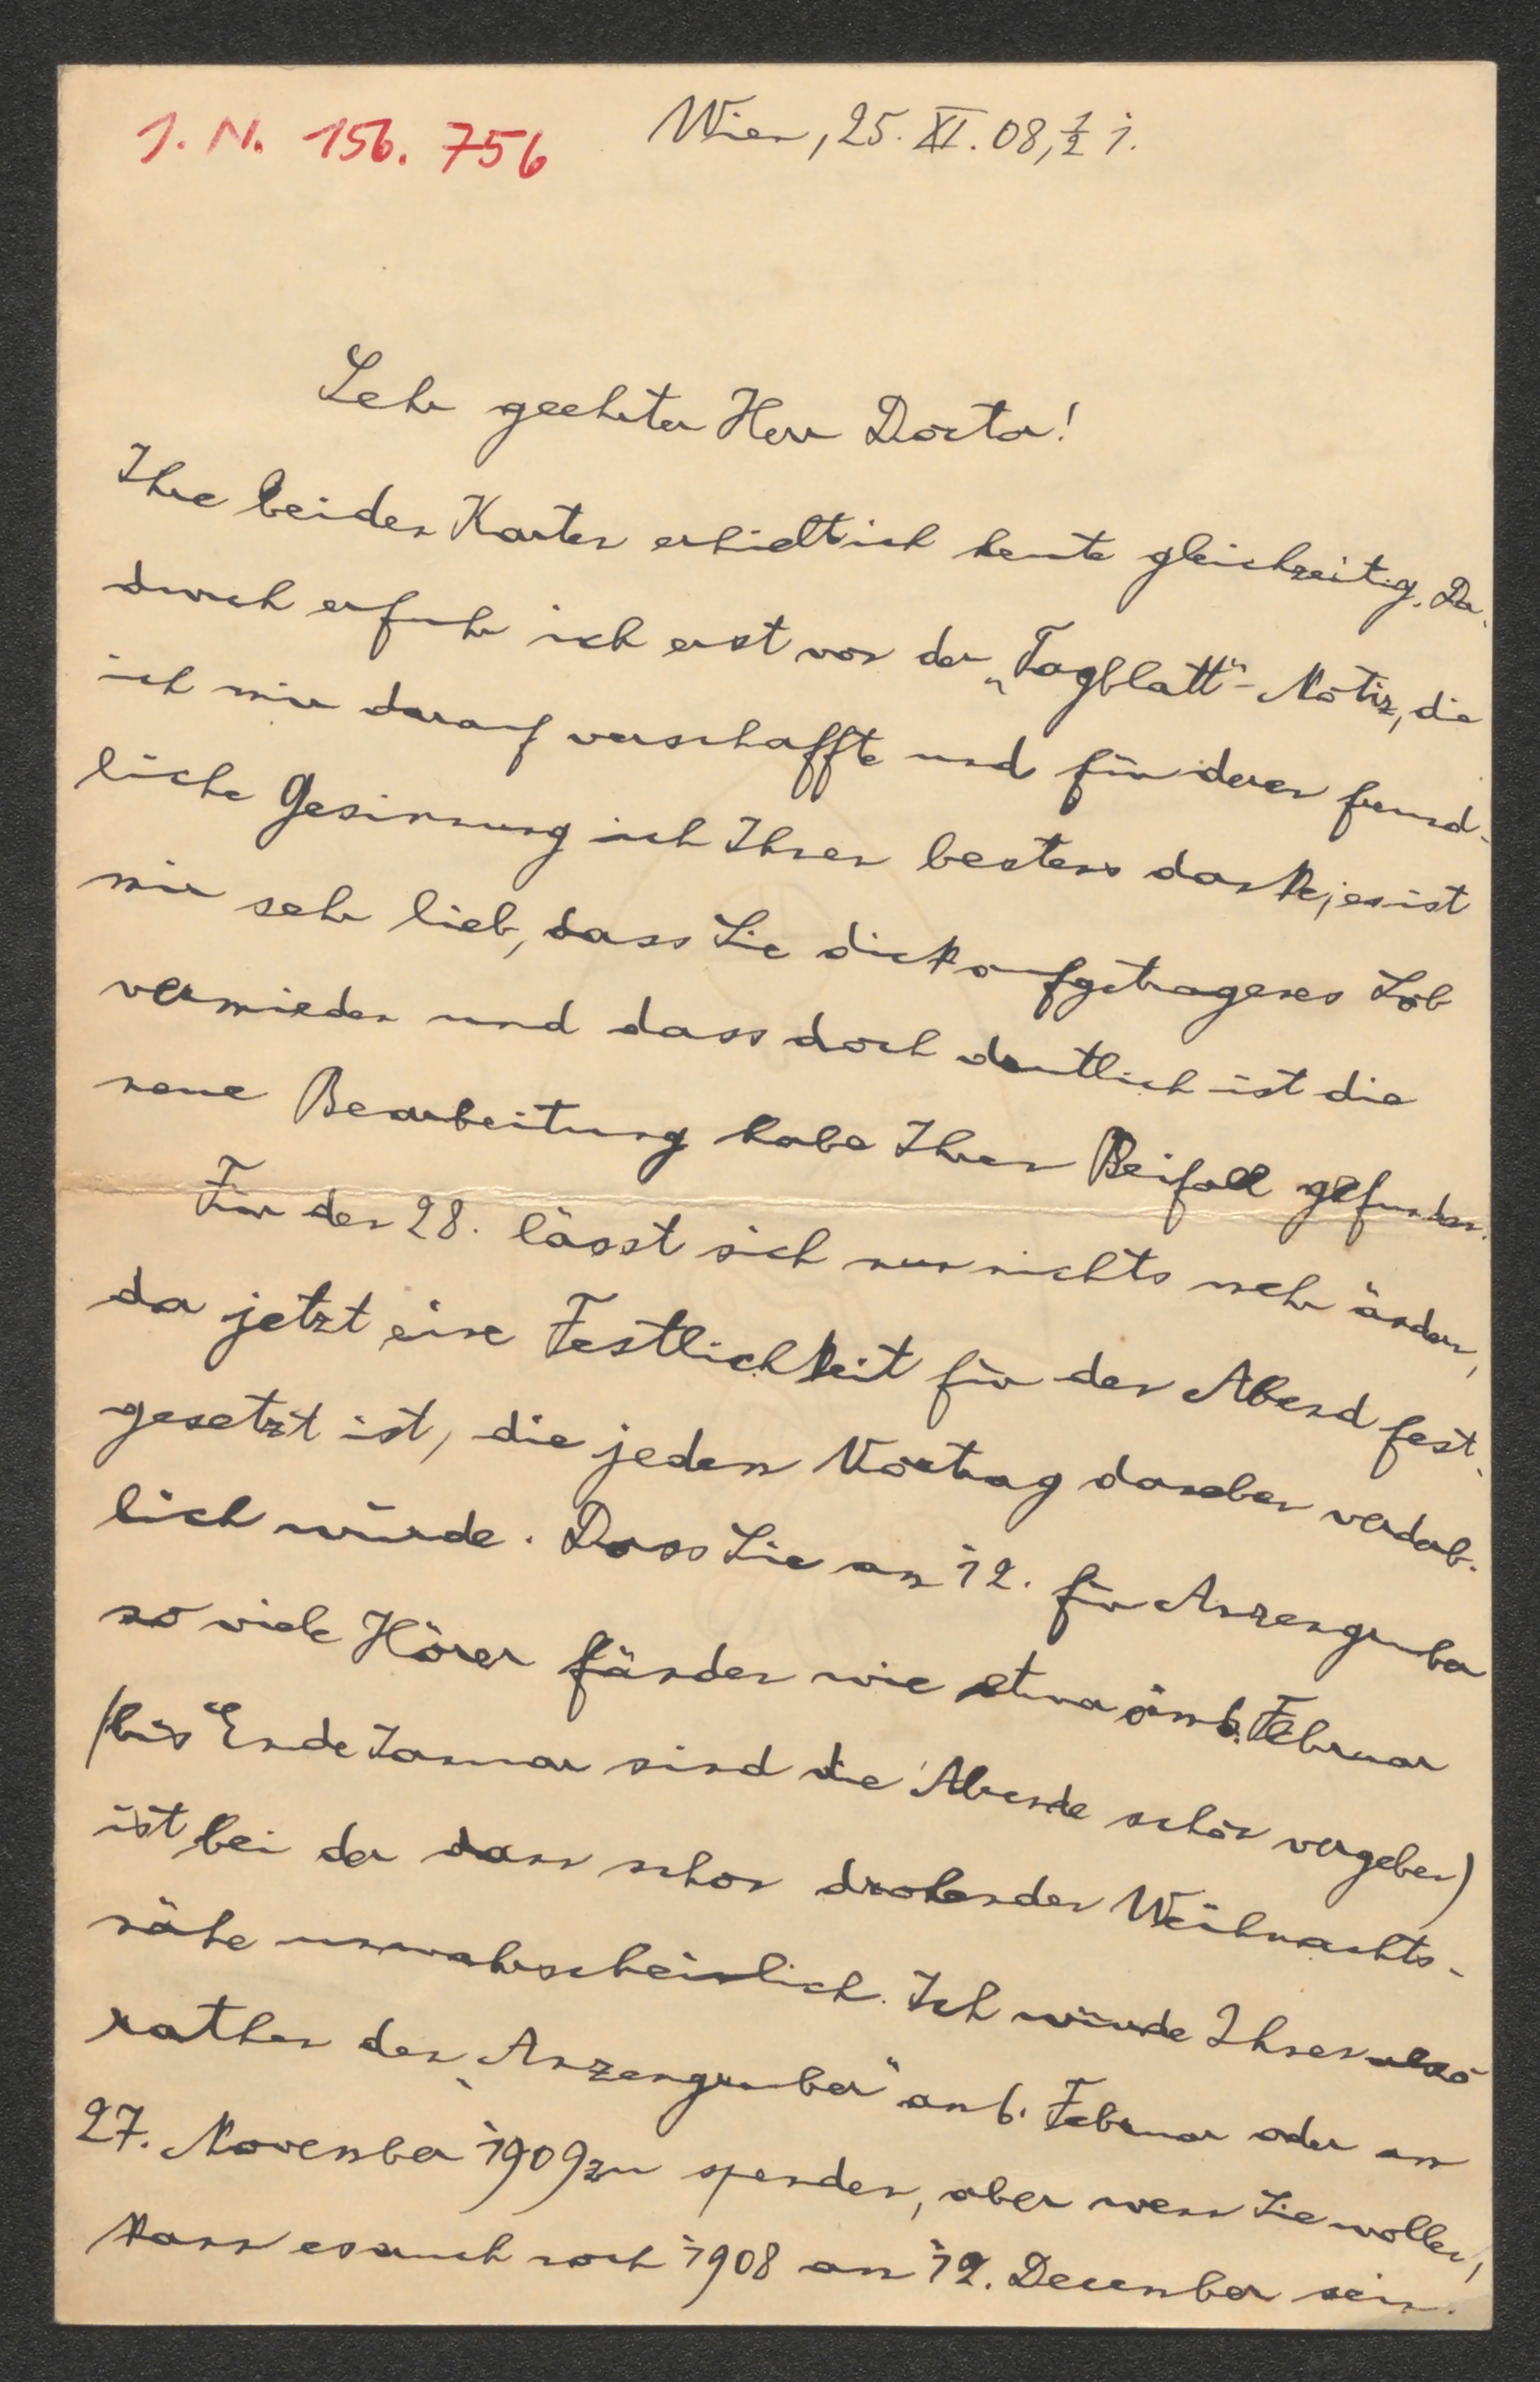 J. N. 156. 756
Wien, 25. XI. 08, ½ 1.
Sehr geehrter Herr Doctor!
Ihre beiden Karten erhielt ich heute gleichzeitig. Da-
durch erfuhr ich erst von der „Tagblatt"-Notiz, die
ich mir darauf verschaffte und für deren freund-
liche Gesinnung ich Ihnen bestens danke; es ist
mir sehr lieb, dass Sie dick aufgetragenes Lob
vermieden und dass doch deutlich ist die
neue Bearbeitung habe Ihren Beifall gefunden.
Für den 28. lässt sich nun nichts mehr ändern,
da jetzt eine Festlichkeit für den Abend fest-
gesetzt ist, die jeden Vortrag daneben verderb-
lich würde. Dass Sie am 12. für Anzengruber
so viele Hörer fänden wie etwa am 6. Februar
(bis Ende Januar sind die Abende schon vergeben)
ist bei der dann schon drohenden Weihnachts-
nähe unwahrscheinlich. Ich würde Ihnen also
rathen den „Anzengruber" am 6. Februar oder am
27. November 1909 zu spenden, aber wenn Sie wollen,
kann es auch noch 1908 am 12. December sein.